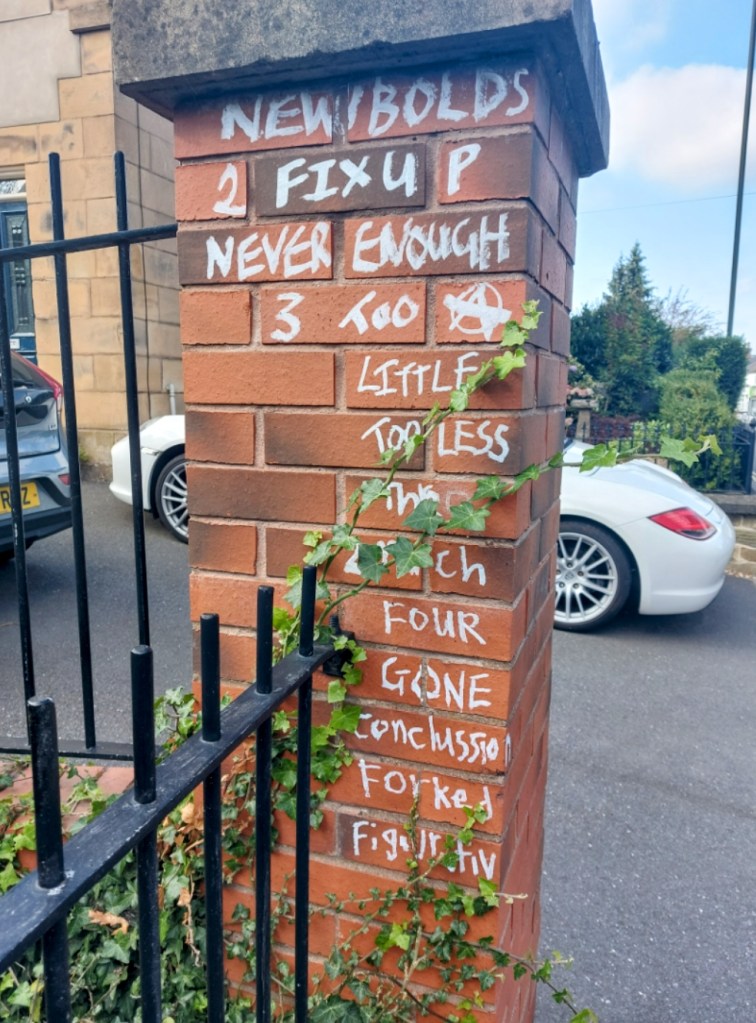 NEWBOLDS
2 FIX UP
NEVER ENOUGH
3 TOO Ⓐ
LITTLE
TOO LESS
FOUR
GONE
Conclussion
Forked